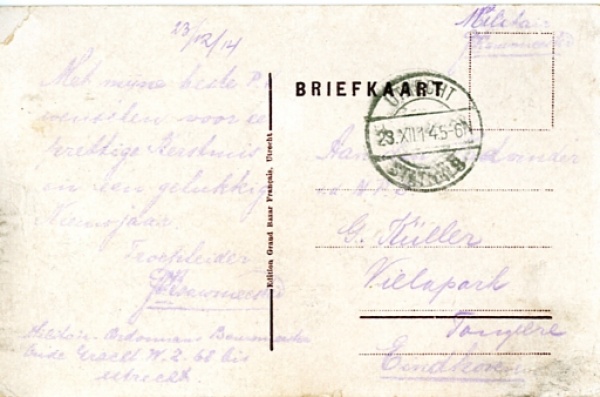 23/12/14
Met mijne beste
wenschen voor ee
prettige Kerstmis
en een gelukkig
Nieuwjaar.
Troepleider
Militair-Ordonnans
Oude Gracht W.Z. 68 bis
Utrecht
Edition Grand Bazar Français, Utrecht
Militair
BRIEFKAART
UTRECHT
23.XII.14.5-6N
STATION
Aan den
v.d. N.P.O
G. Küller
Villapark
Tongelre
Eindhoven